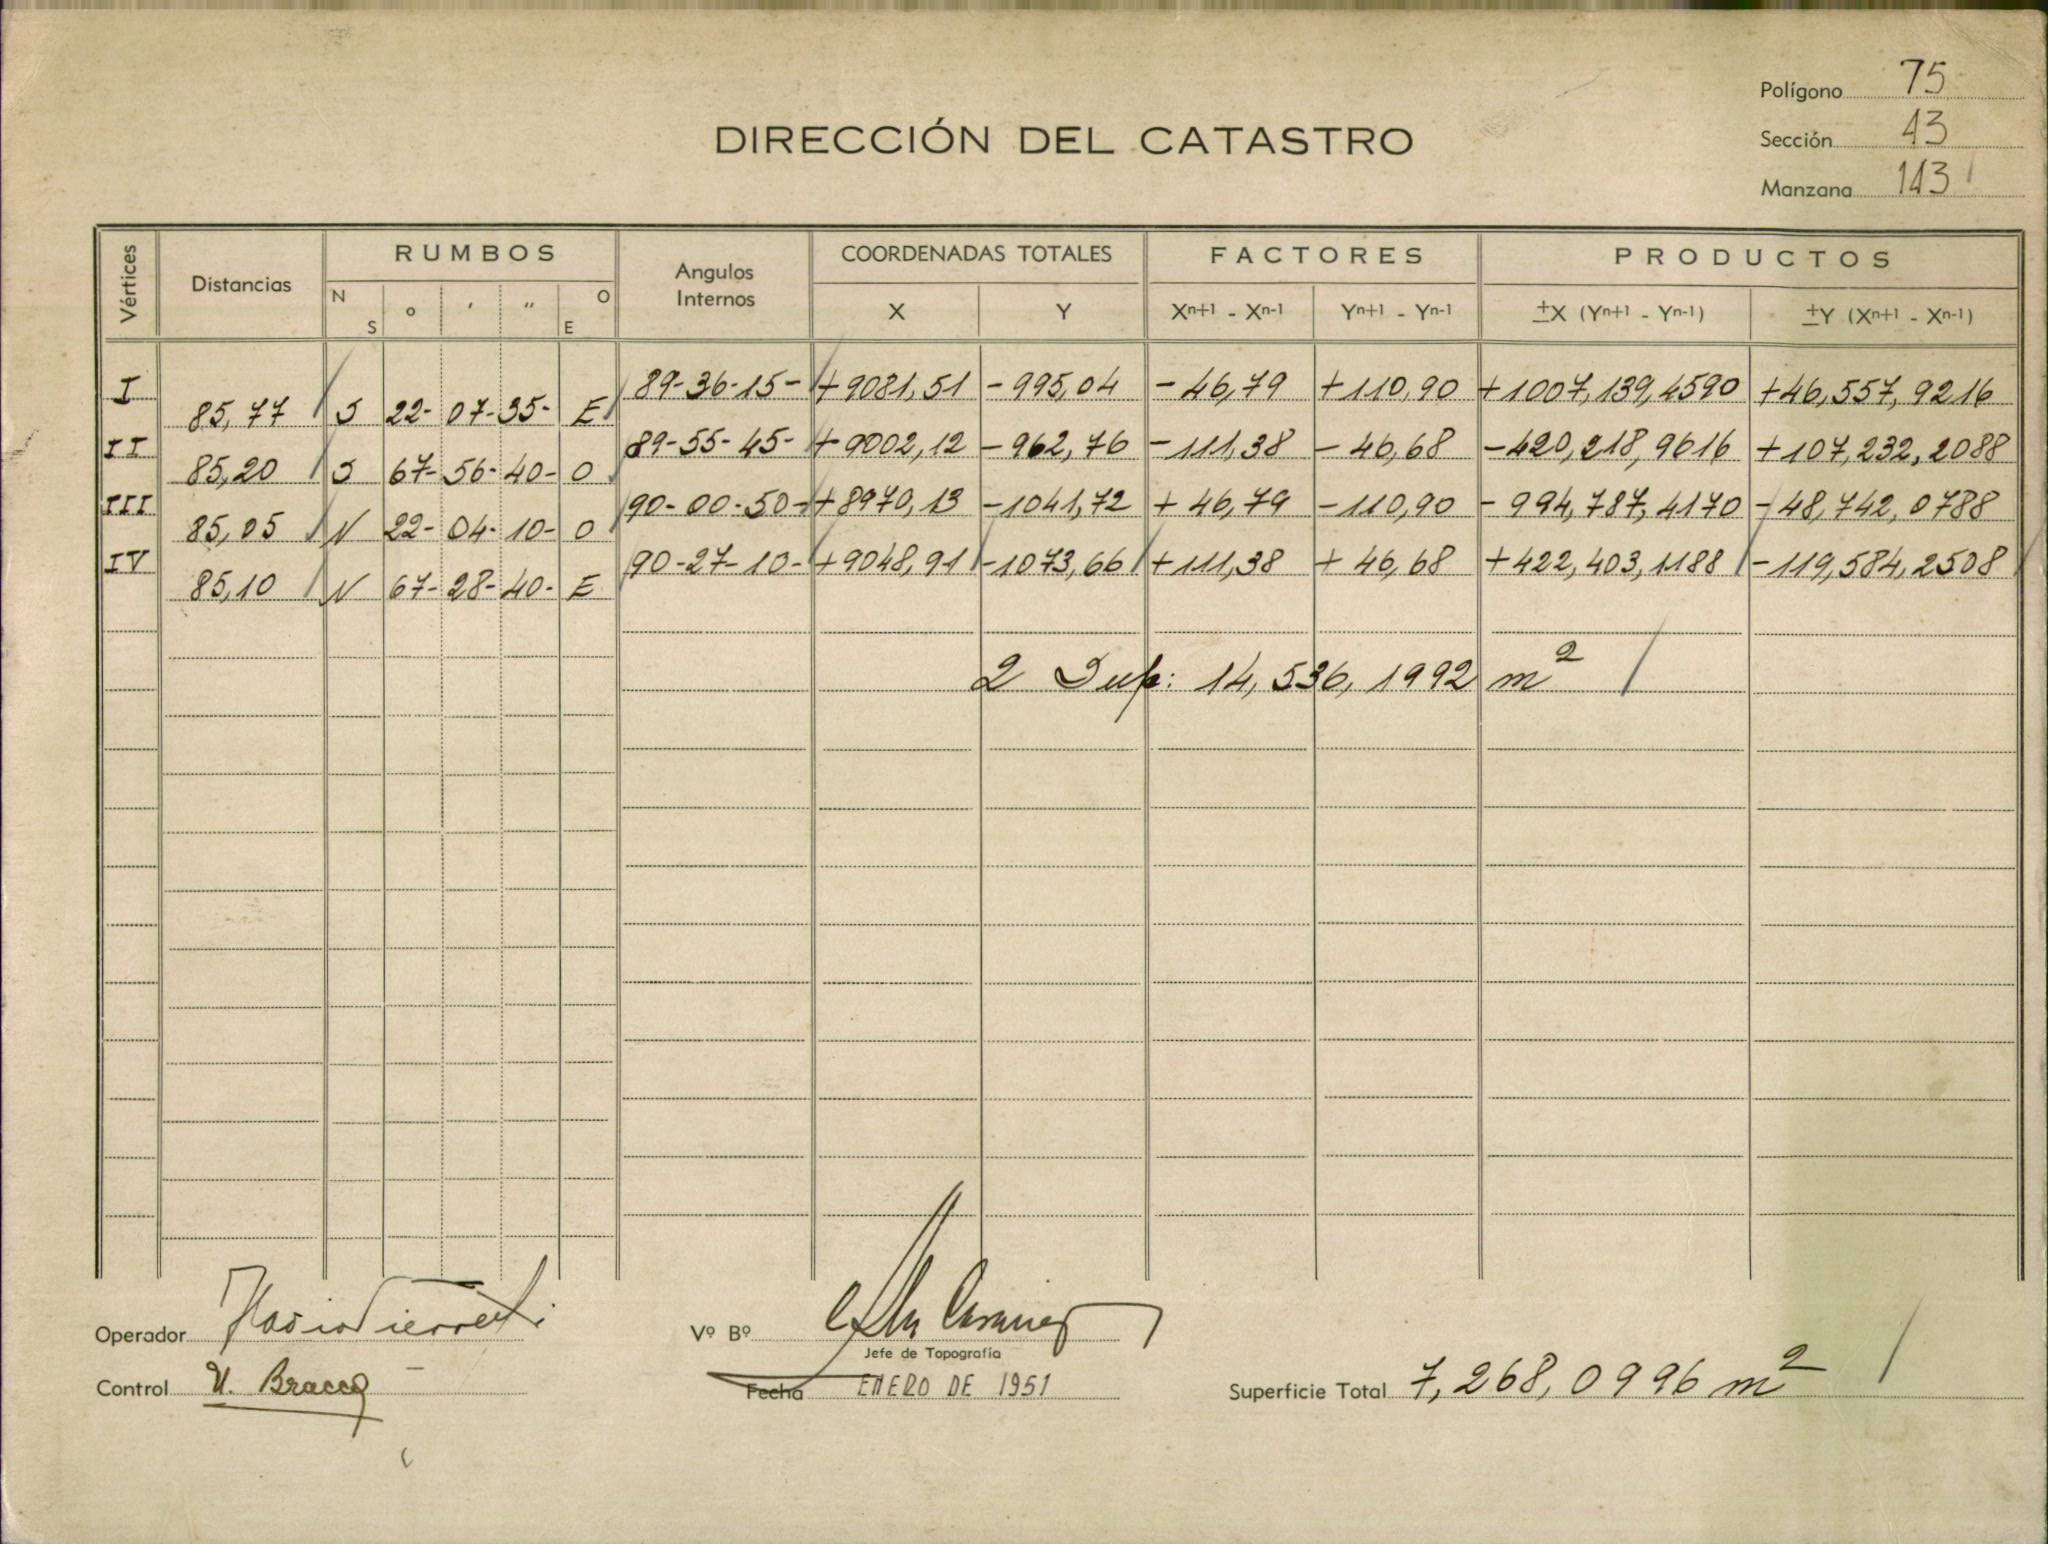 Polígono 75
DIRECCIÓN DEL CATASTRO
Sección 43
Manzana 143
Vértices Distancias RUMBOS Angulos Internos COORDENADAS TOTALES FACTORES PRODUCTOS
N S ° ' " O E X Y Xn+1 - Xn-1 Yn+1 - Yn-1 ±X (Yn+1 - Yn-1) ±Y (Xn+1 - Xn-1)
I 89-36-15- +9081,51 -995,04 -46,79 +110,90 +1007,139,4590 +46,557,9216
85,77 S 22- 07- 35- E
II 89-55-45- +9002,12 -962,76 -111,38 -46,68 -420,218,9616 +107,232,2088
85,20 S 67- 56- 40- O
III 90-00-50- +8970,13 -1041,72 +46,79 -110,90 -994,787,4170 -48,742,0788
85,05 N 22- 04- 10- O
IV 90-27-10- +9048,91 -1073,66 +111,38 +46,68 +422,403,1188 -119,584,2508
85,10 N 67- 28- 40- E
2 Sup: 14,536,1992 m²
Operador
Vº Bº
Jefe de Topografía
Control U. Bracco
Fecha ENERO DE 1951
Superficie Total 7,268,0996 m²